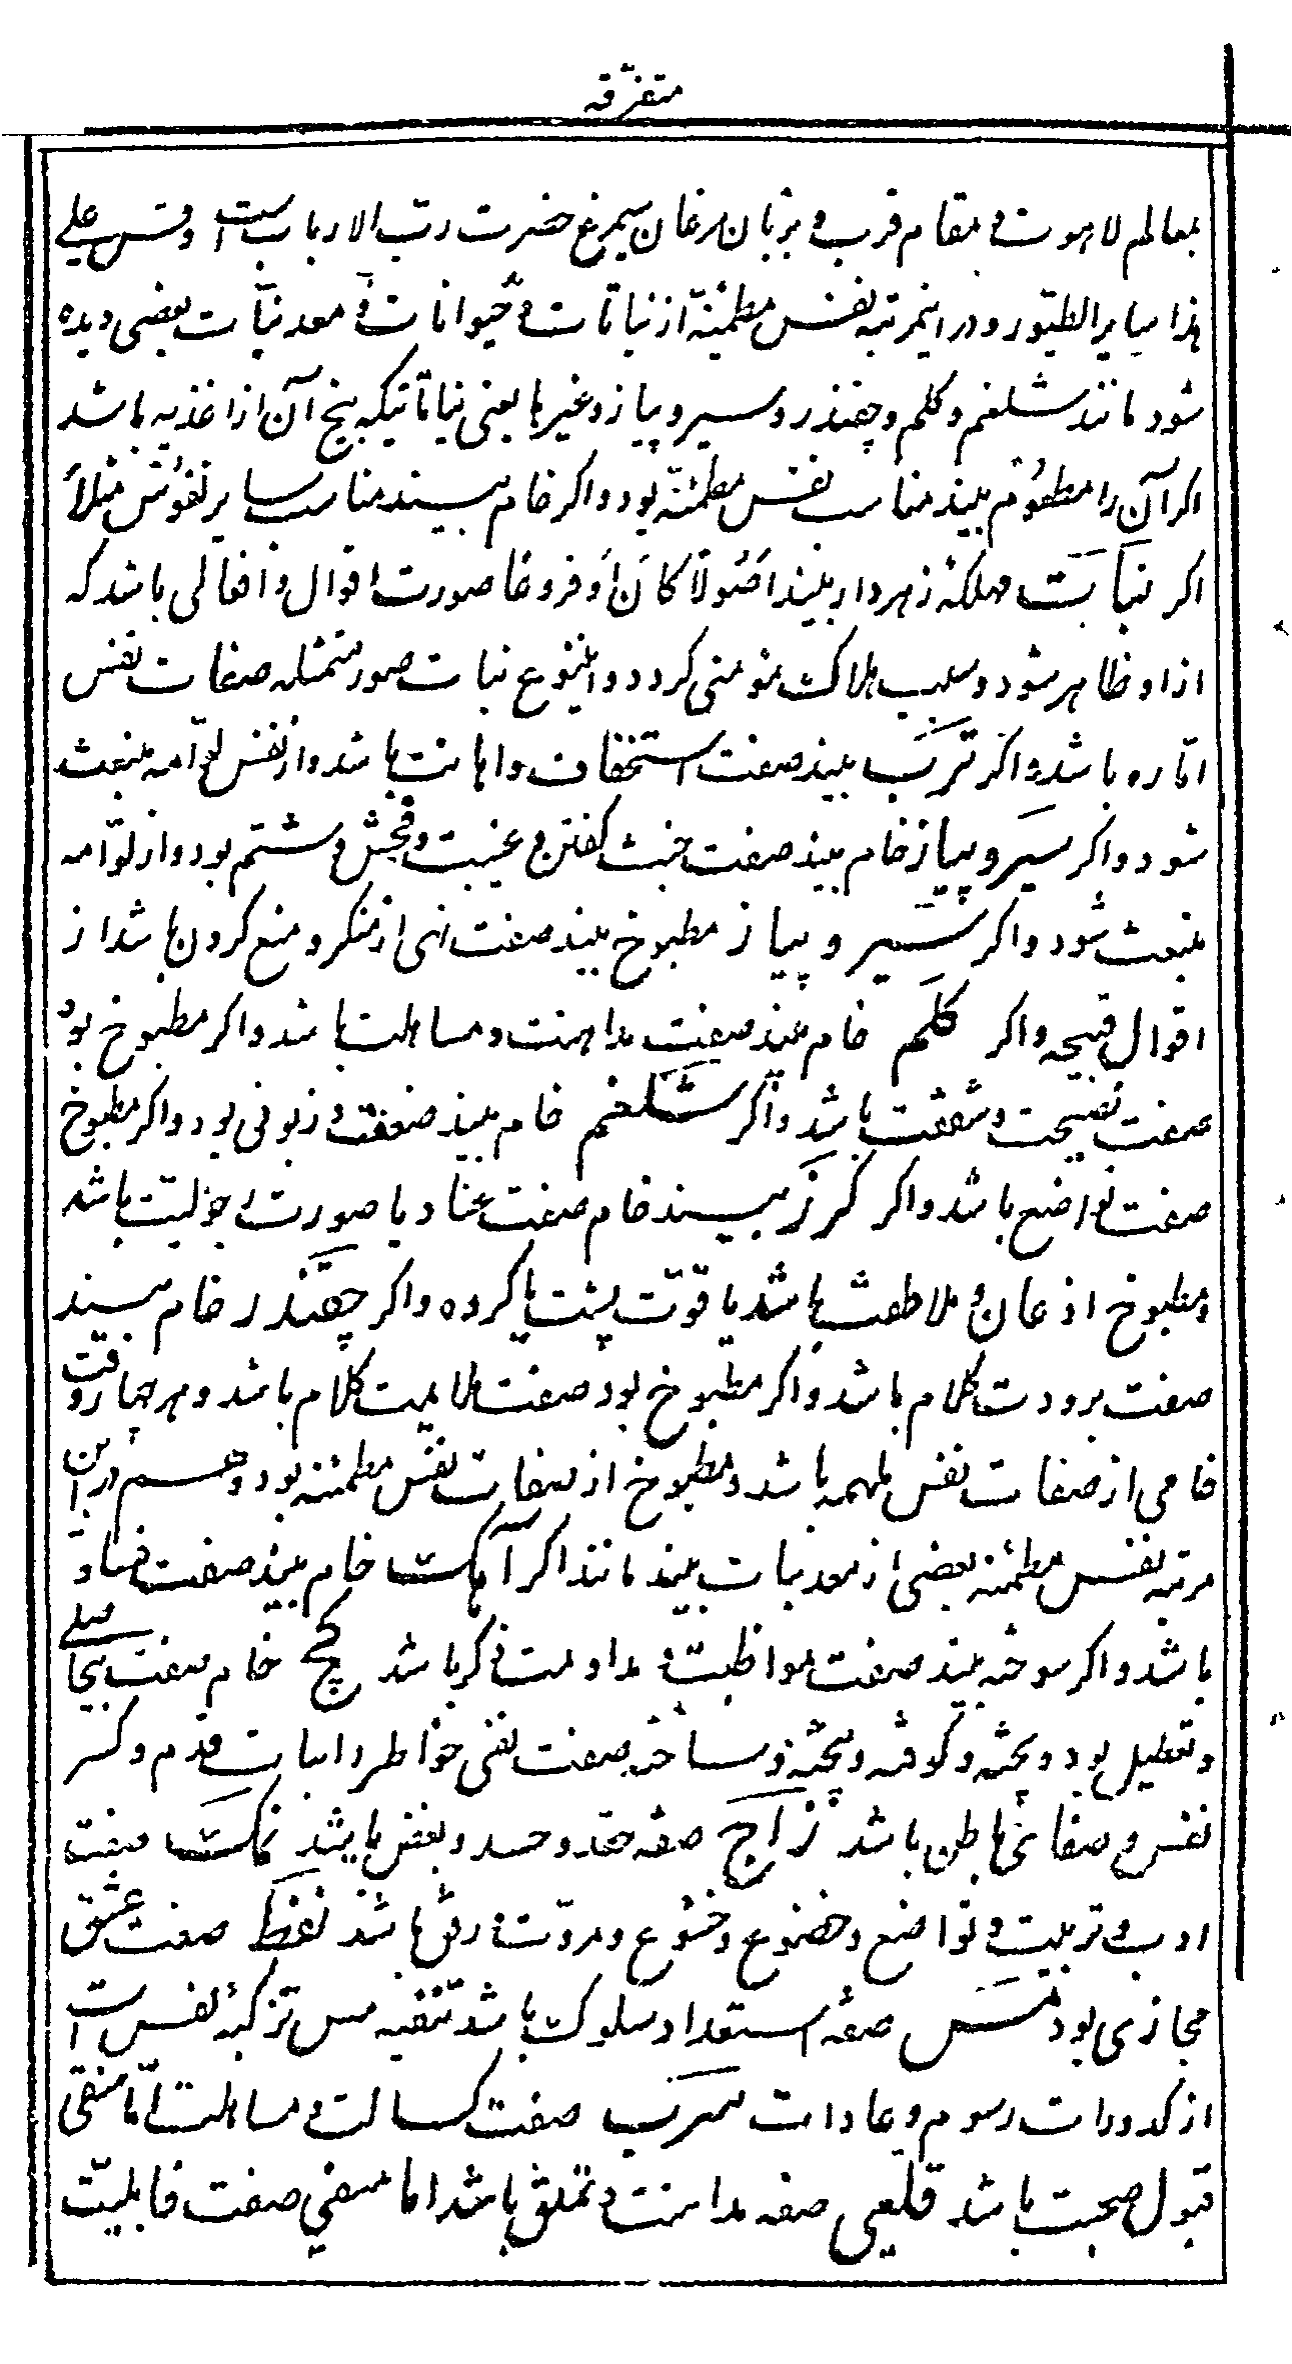 متفرّقه
بعالم لاهوت و مقام قرب و بزبان مرغان سیمرغ حضرت ربّ الارباب است و قس علی
هذا سایر الطیور و در اینمرتبه نفس مطمئنّه از نباتات و حیوانات و معدنیّات بعضی دیده
شود مانند شلغم و کلم و چغندر و سیر و پیاز و غیرها یعنی نباتاتیکه بیخ آن از اغذیه باشد
اکر آن را مطعوم بیند مناسب نفس مطمئنّه بود و اکر خام بیند مناسب سایر نفوس مثلاً
اکر نباتیت مهلکهٔ زهردار بیند اصولاً کان او فروعا صورت اقوال و افعالی باشد که
از او ظاهر شود و سبب هلاکت مؤمنی کردد و اینوع نبات صور متمثله صفات نفس
امّاره باشد و اکر ترب بیند صفت استخفاف و اهانت باشد و از نفس لوّامه منبعث
شود و اکر سیر و پیاز خام بیند صفت خبث کفتن و غیبت و فحش و شتم بود و از لوّامه
منبعث شود و اکر سیر و پیاز مطبوخ بیند صفت نهی از منکر و منع کردن باشد از
اقوال قبیحه و اکر کلم خام بیند صفت مداهنت و مساهلت باشد و اکر مطبوخ بود
صفت نصیحت و شفقت باشد و اکر شلغم خام بیند صفت و زبونی بود و اکر مطبوخ
صفت تواضع باشد و اکر کزر بیند خام صفت عناد یا صورت رجولیت باشد
و مطبوخ اذعان و ملاطفت باشد یا قوّت پشت یا کرده و اکر چغندر خام بیند
صفت برودت کلام باشد و اکر مطبوخ بود صفت ملایمت کلام باشد و هر چهار وقت
خامی از صفات نفس ملهمه باشد و مطبوخ از صفات نفس مطمئنه بود و هم در این
مرتبه نفس مطمئنه بعضی از معدنیات بیند مانند اکر آهک خام بیند صفت
باشد و اکر سوخته بیند صفت مواظبت و مداومت ذکر باشد کچ خام صفت بیحاصلی
و تعطیل بود و پخته و کوفته و بیخته و ساخته صفت نفی خواطر و اثبات قدم و کسر
نفس و صفای باطن باشد زاج صفه حقد و حسد و بغض باشد نمک صفت
ادب و تربیت و تواضع و خضوع و خشوع و مروّت و رفق باشد نفط صفت عشق
مجازی بود مس صفه استعداد سلوک باشد تنقیه مس تزکیهٔ نفس است
از کدورات رسوم و عادات سرب صفت کسالت و مساهلت امّا منقی
قبول صحبت باشد قلعی صفه مداهنت و تملق باشد اما منقی صفت قابلیّت